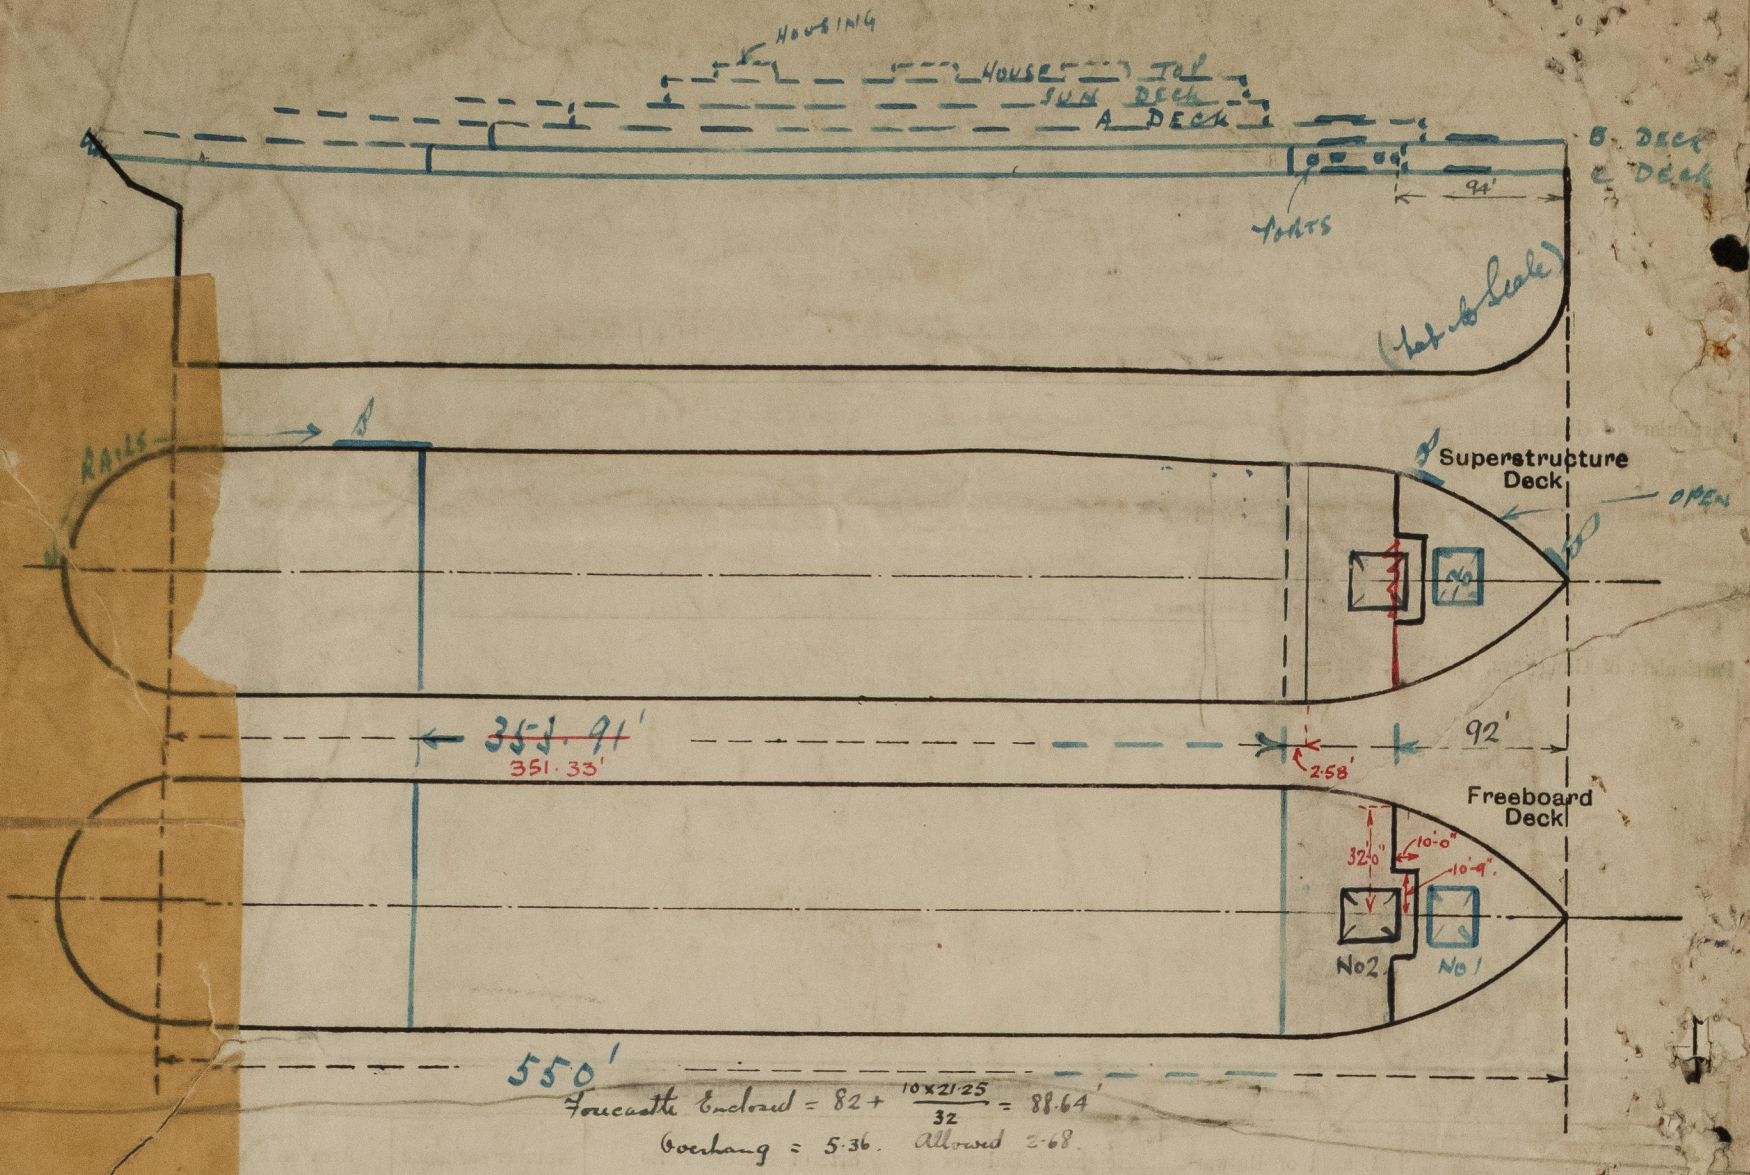 HOUSING
HOUSE TOP
SUN DECK
A DECK
B DECK
C DECK
94'
PORTS
(Not to Scale)
RAILS
Superstructure
Deck
OPEN
353.91'
351.33'
2.58'
92'
Freeboard
Deck
32'0"
10'-0"
10'-9".
No2
No1
550'
Forecastle Enclosed = 82 + 10x21.25/32 = 88.64'
Overhang = 5.36. Allowed 2.68.